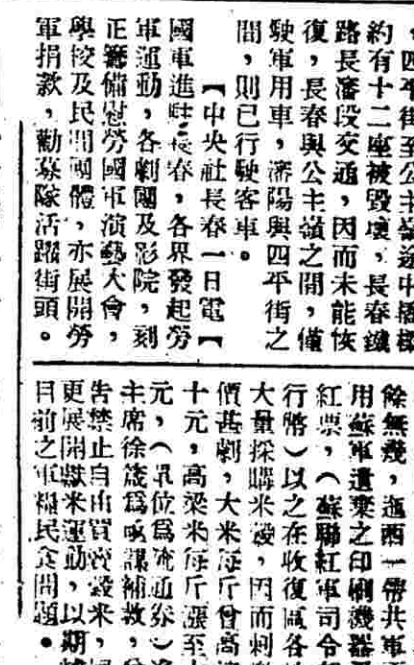 ，四平街至公主嶺途中橋樑
約有十二座被毀壞，長春鐵
路長瀋段交通，因而未能恢
復，長春與公主嶺之間，僅
駛軍用車，瀋陽與四平街之
間，則已行駛客車。
【中央社長春一日電】
國軍進駐長春，各界發起勞
軍運動，各劇團及影院，刻
正籌備慰勞國軍演藝大會，
學校及民間團體，亦展開勞
軍捐款，勸募隊活躍街頭。
餘無幾，迤西一帶共軍
用蘇軍遺棄之印刷機器
紅票，（蘇聯紅軍司令
行幣）以之在收復區各
大量採購米穀，因而刺
價甚劇，大米每斤曾高
十元，高粱米每斤漲至
元，（單位為流通券）
主席徐箴為承謀補救，
告禁止自由買賣穀米，
更展開獻米運動，以期
目前之軍糧民食問題。